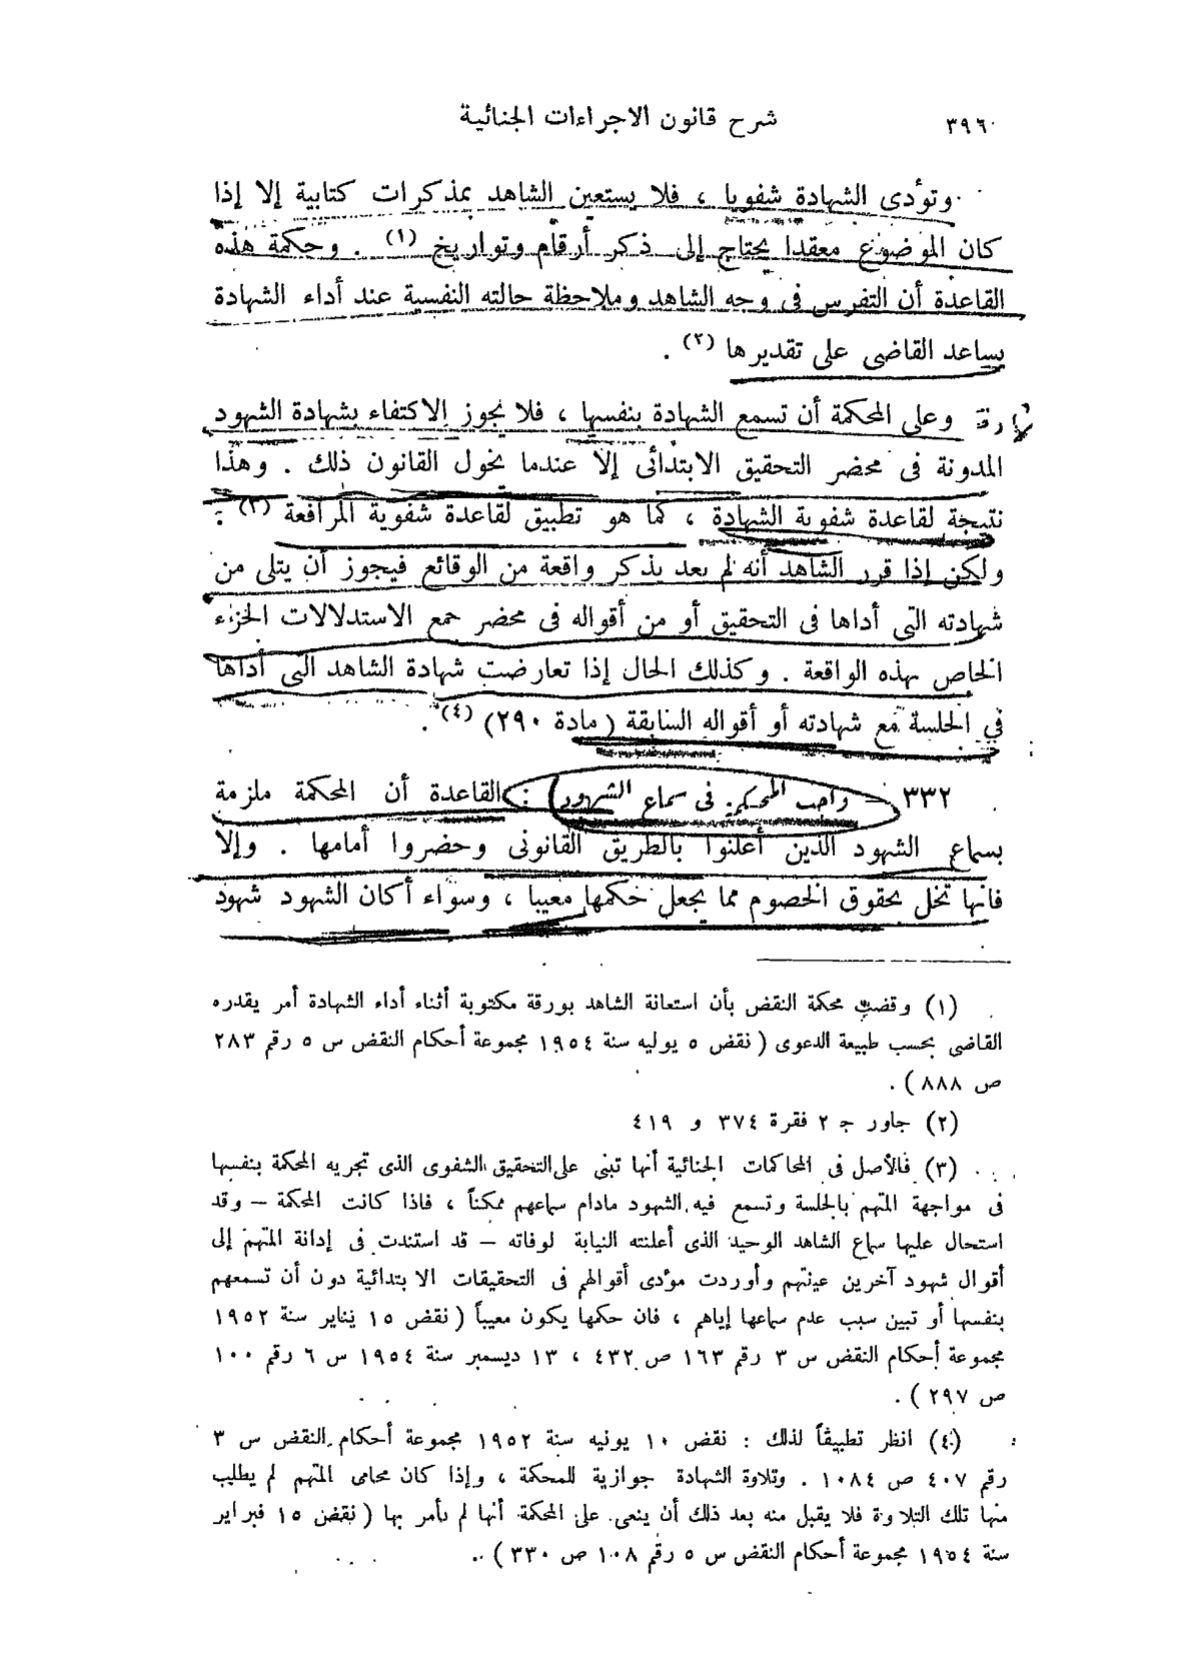 ٣٩٦ شرح قانون الاجراءات الجنائية
وتؤدى الشهادة شفويا ، فلا يستعين الشاهد بمذكرات كتابية إلا إذا
كان الموضوع معقدا يحتاج إلى ذكر أرقام وتواريخ (١) . وحكمة هذه
القاعدة أن التفرس فى وجه الشاهد وملاحظة حالته النفسية عند أداء الشهادة
يساعد القاضى على تقديرها (٢) .
وعلى المحكمة أن تسمع الشهادة بنفسها ، فلا يجوز الاكتفاء بشهادة الشهود
المدونة فى محضر التحقيق الابتدائى إلا عندما يخول القانون ذلك . وهذا
نتيجة لقاعدة شفوية الشهادة ، كما هو تطبيق لقاعدة شفوية المرافعة (٣) .
ولكن إذا قرر الشاهد أنه لم يعد يذكر واقعة من الوقائع فيجوز أن يتلى من
شهادته التى أداها فى التحقيق أو من أقواله فى محضر جمع الاستدلالات الجزء
الخاص بهذه الواقعة . وكذلك الحال إذا تعارضت شهادة الشاهد التى أداها
فى الجلسة مع شهادته أو أقواله السابقة ( مادة ٢٩٠) (٤) .
٣٣٢ – واجب المحكمة فى سماع الشهود : القاعدة أن المحكمة ملزمة
بسماع الشهود الذين أعلنوا بالطريق القانونى وحضروا أمامها . وإلا
فانها تخل بحقوق الخصوم مما يجعل حكمها معيبا ، وسواء أكان الشهود شهود
(١) وقضت محكمة النقض بأن استعانة الشاهد بورقة مكتوبة أثناء أداء الشهادة أمر يقدره
القاضى بحسب طبيعة الدعوى ( نقض ٥ يوليه سنة ١٩٥٤ مجموعة أحكام النقض س ٥ رقم ٢٨٣
ص ٨٨٨ ) .
(٢) جاور ج ٢ فقرة ٣٧٤ و ٤١٩
(٣) فالأصل فى المحاكمات الجنائية أنها تبنى على التحقيق الشفوى الذى تجريه المحكمة بنفسها
فى مواجهة المتهم بالجلسة وتسمع فيه الشهود مادام سماعهم ممكناً ، فاذا كانت المحكمة – وقد
استحال عليها سماع الشاهد الوحيد الذى أعلنته النيابة لوفاته – قد استندت فى إدانة المتهم إلى
أقوال شهود آخرين عينتهم وأوردت مؤدى أقوالهم فى التحقيقات الابتدائية دون أن تسمعهم
بنفسها أو تبين سبب عدم سماعها إياهم ، فان حكمها يكون معيباً ( نقض ١٥ يناير سنة ١٩٥٢
مجموعة أحكام النقض س ٣ رقم ١٦٣ ص ٤٣٢ ، ١٣ ديسمبر سنة ١٩٥٤ س ٦ رقم ١٠٠
ص ٢٩٧ ) .
(٤) انظر تطبيقاً لذلك : نقض ١٠ يونيه سنة ١٩٥٢ مجموعة أحكام النقض س ٣
رقم ٤٠٧ ص ١٠٨٤ . وتلاوة الشهادة جوازية للمحكمة ، وإذا كان محامى المتهم لم يطلب
منها تلك التلاوة فلا يقبل منه بعد ذلك أن ينعى على المحكمة أنها لم تأمر بها ( نقض ١٥ فبراير
سنة ١٩٥٤ مجموعة أحكام النقض س ٥ رقم ١٠٨ ص ٣٣٠ ) .